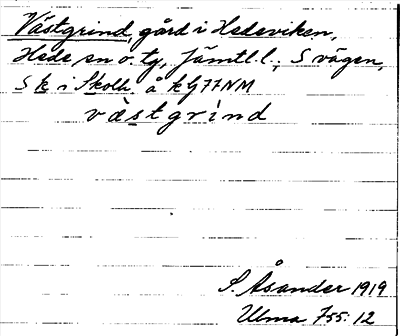 Västgrind, gård i Hedeviken,
Hede sn o. tg, Jämtl. l., S vägen,
S k i Skolh. å kG77NM
västgrind
S. Åsander 1919
Ulma 755:12